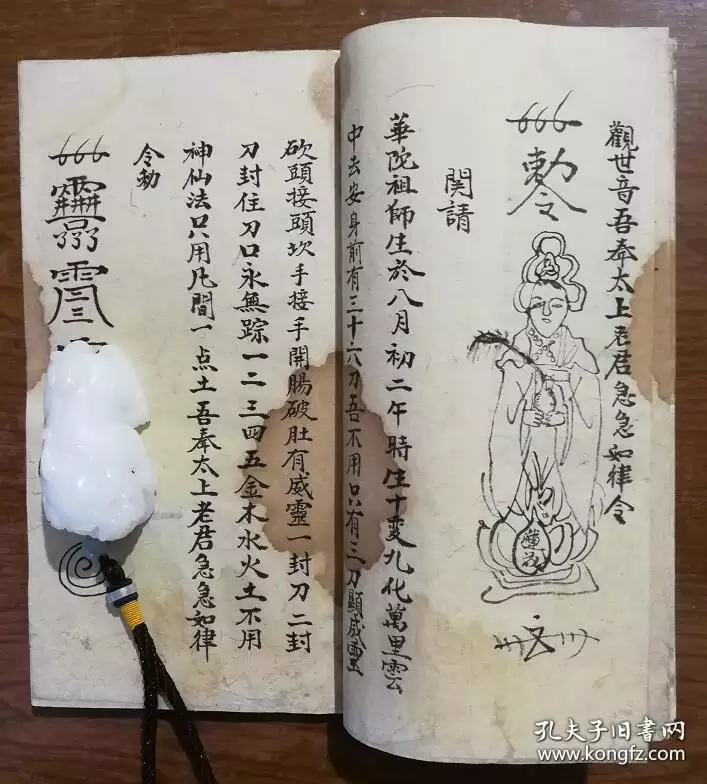 觀世音吾奉太上老君急急如律令
勅令
蓮花
関請
華陀祖師生於八月初二午時生十変九化萬里雲
中去安身前有三十六刀吾不用只有三刀顯威靈
砍頭接頭坎手接手開腸破肚有威靈一封刀二封
刀封住刀口永無踪一二三四五金木水火土不用
神仙法只用凡間一点土吾奉太上老君急急如律
令勅
孔夫子旧书网
www.kongfz.com